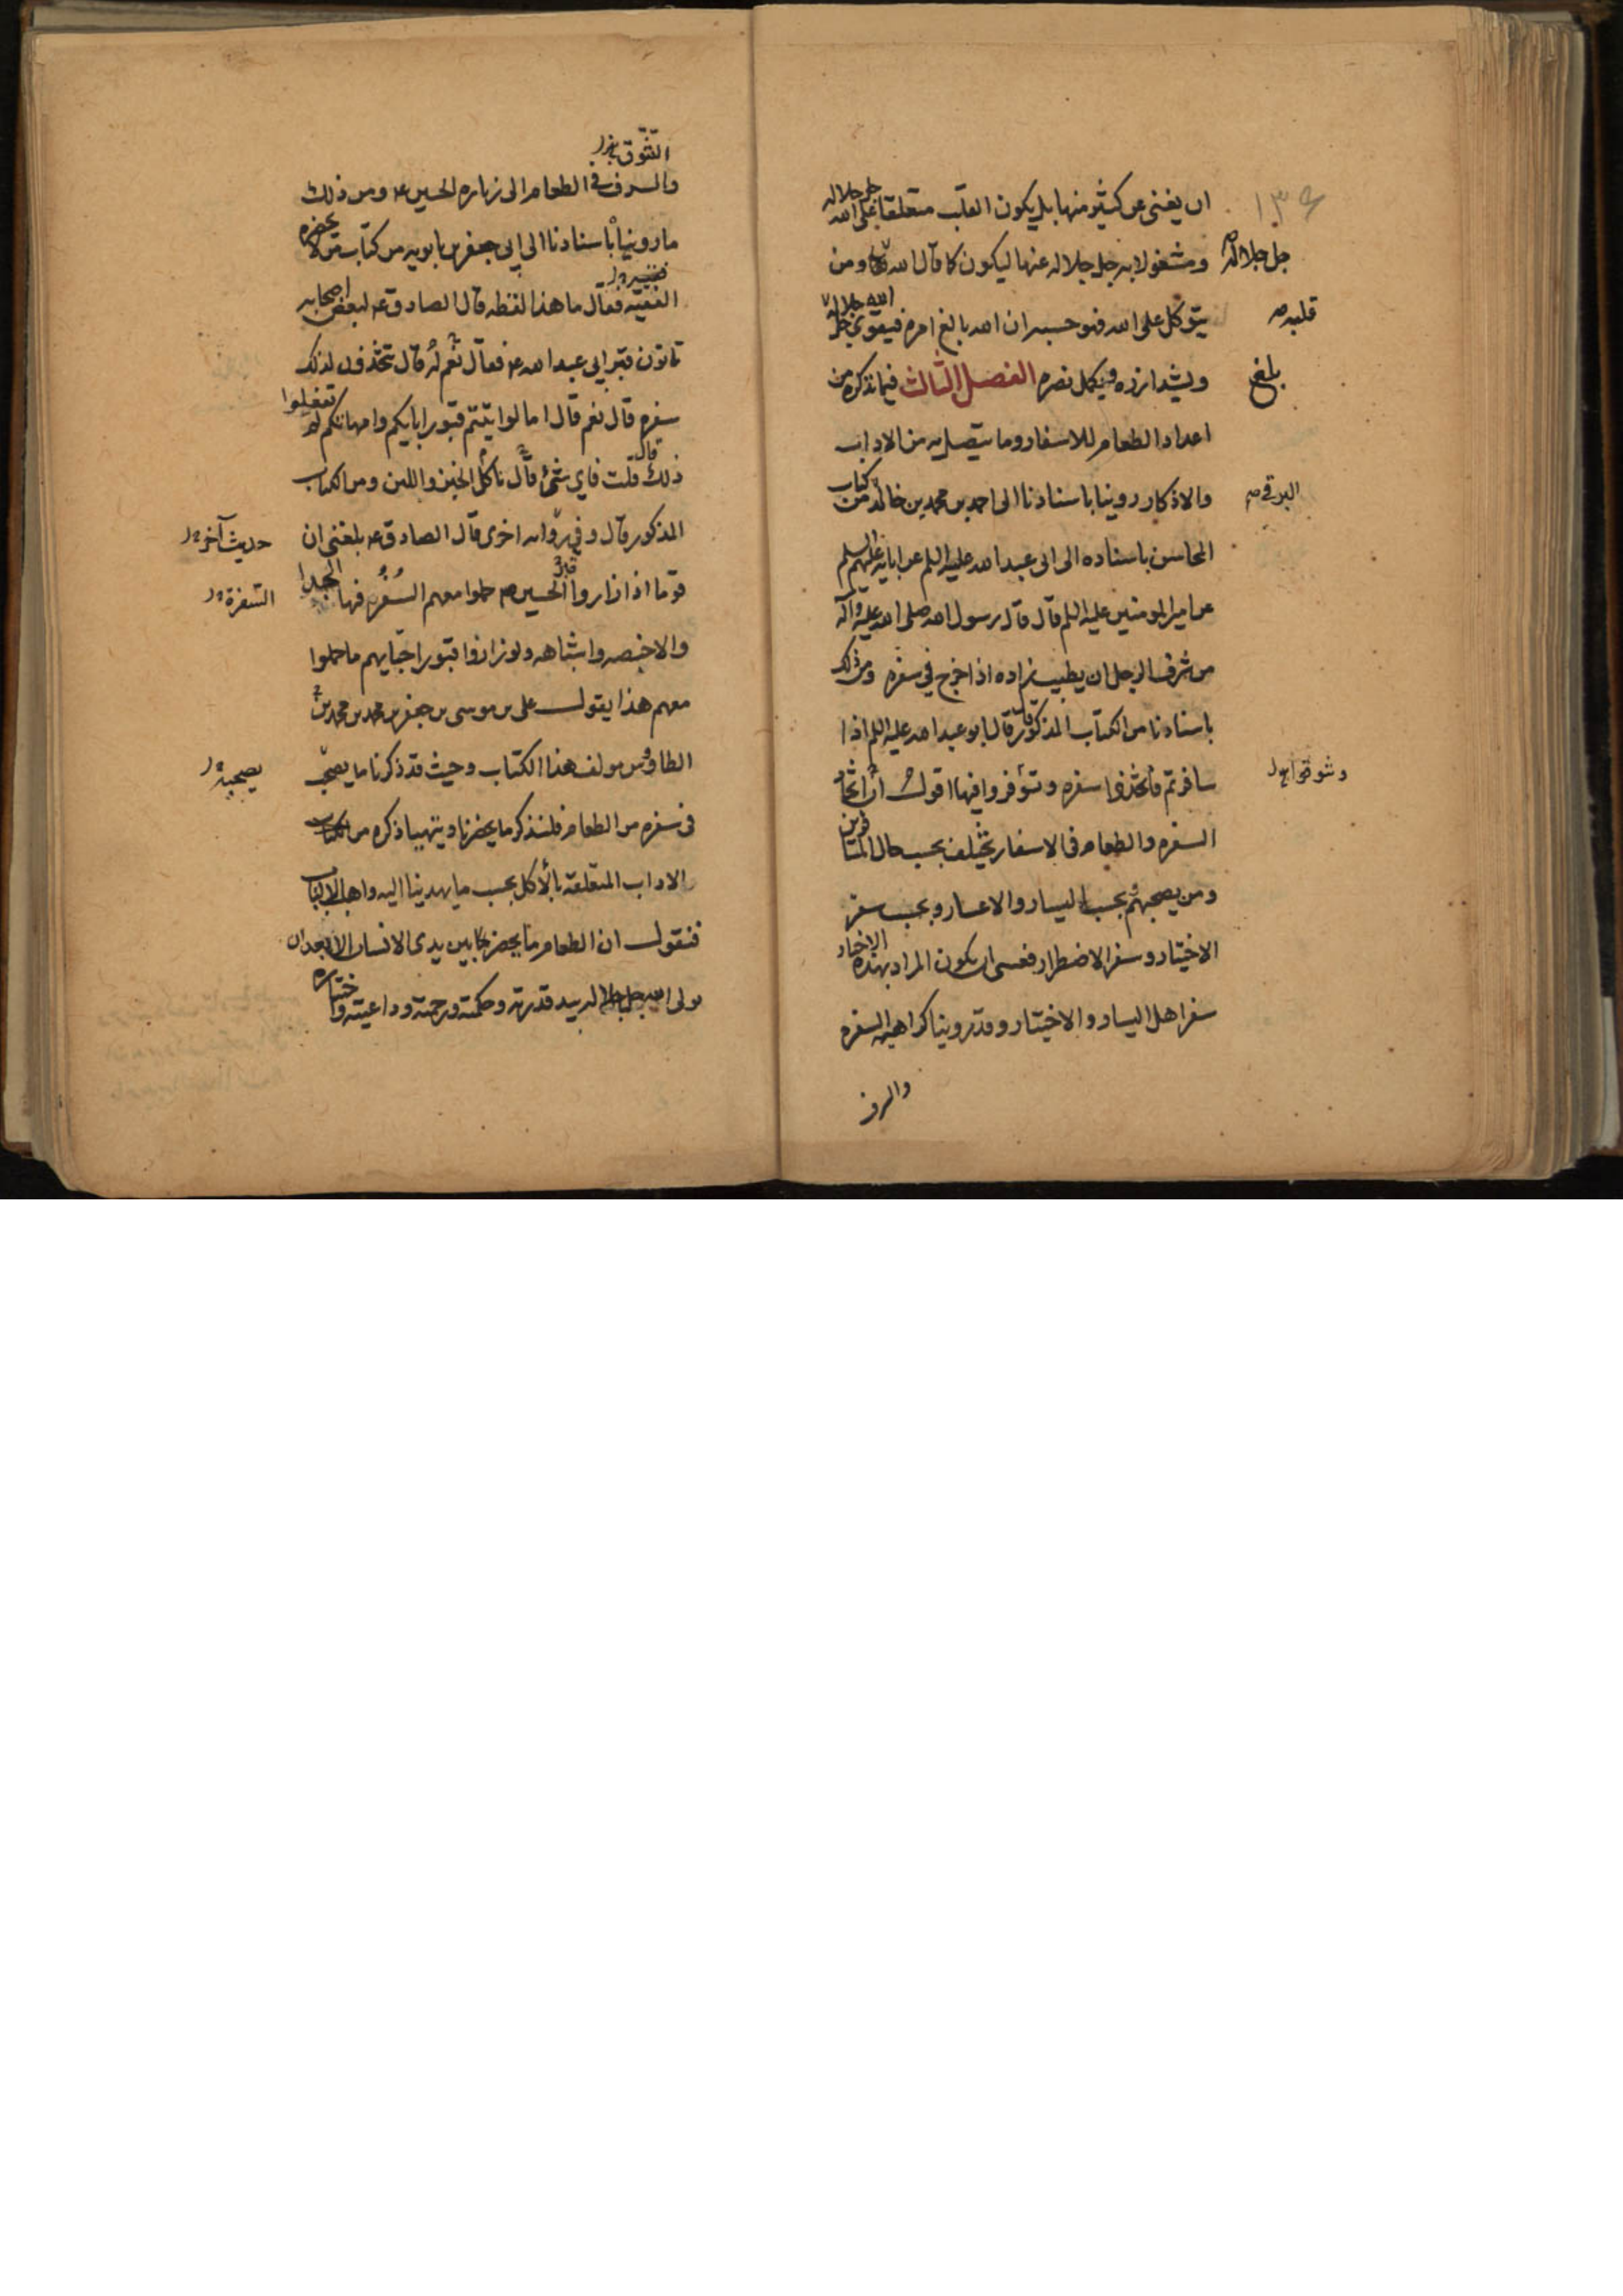 ان يغنى عن كثير منها بل يكون القلب متعلقا على الله جل جلاله
ومشغولا به جل جلاله عنها ليكون كما قال الله ومن
جل جلاله
يتوكل على الله فهو حسبه ان الله بالغ امره فيقوى الله جل جلاله
قلبه
ويشد ازره ويكمل نصره الفصل الثالث فيما نذكره من
بلغ
اعداد الطعام للاسفار وما يتصل به من الاداب
والاذكار روينا باسنادنا الى احمد بن محمد بن خالد من كتاب
البرقى
المحاسن باسناده الى ابى عبد الله عليه السلم عن ابايه عليهم السلم
عن امير المومنين عليه السلم قال قال رسول الله صلى الله عليه وآله
من شرف الرجل ان يطيب زاده اذا خرج في سفره ومن ذلك
باسنادنا من الكتاب المذكور قال قال ابو عبد الله عليه السلم اذا
سافرتم فاتخذوا سفره وتنوقوا فيها اقول ان اتخاذ
السفره والطعام فى الاسفار يختلف بحسب حال المسافرين
ومن يصحبهم بحسب اليسار والاعسار وبحسب سفر
الاختيار وسفر الاضطرار فعسى ان يكون المراد بهذه الاخبار
سفر اهل اليسار والاختيار وقد روينا كراهيه السفره
والسرف
التنوق
والسرف فى الطعام الى زياره الحسين ع ومن ذلك
ما رويناه باسنادنا الى ابى جعفر بن بابويه من كتاب من لا يحضره
الفقيه فقال ما هذا لفظه قال الصادق ع لبعض اصحابه
تاتون قبر ابى عبد الله ع فقال نعم له قال تتخذون لذلك
سفره قال نعم قال اما لو اتيتم قبور ابايكم وامهاتكم لم تفعلوا
ذلك قال قلت فاى شئ ناكل قال الخبز واللبن ومن الكتاب
المذكور قال وفي روايه اخرى قال الصادق ع بلغنى ان
حديث آخر
قوما اذا زاروا قبر الحسين ع حملوا معهم السفر فيها الجدا
السفرة
والاخبصه واشباهه ولو زاروا قبور احبايهم ما حملوا
معهم هذا يقول على بن موسى بن جعفر بن محمد بن محمد بن
الطاوس مولف هذا الكتاب وحيث قد ذكرنا ما يصحب
يصحبه
فى سفره من الطعام فلنذكر ما يحضرنا ويتهيا ذكره من
الاداب المتعلقه بالأكل بحسب ما يهدينا اليه واهب الالباب
فنقول ان الطعام ما يحضر بين يدى الانسان الا بعد ان
تولى الله جل جلاله بيد قدرته وحكمته ورحمته وداعيته واختياره